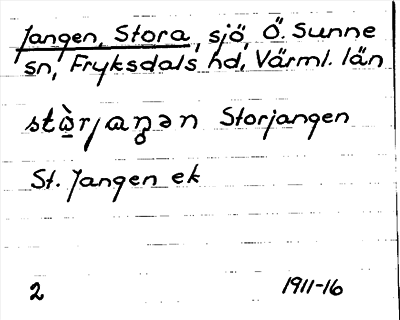 Jangen, Stora, sjö, Ö. Sunne
sn, Fryksdals hd, Värml. län
Storjangen
St. Jangen ek
2 1911-16